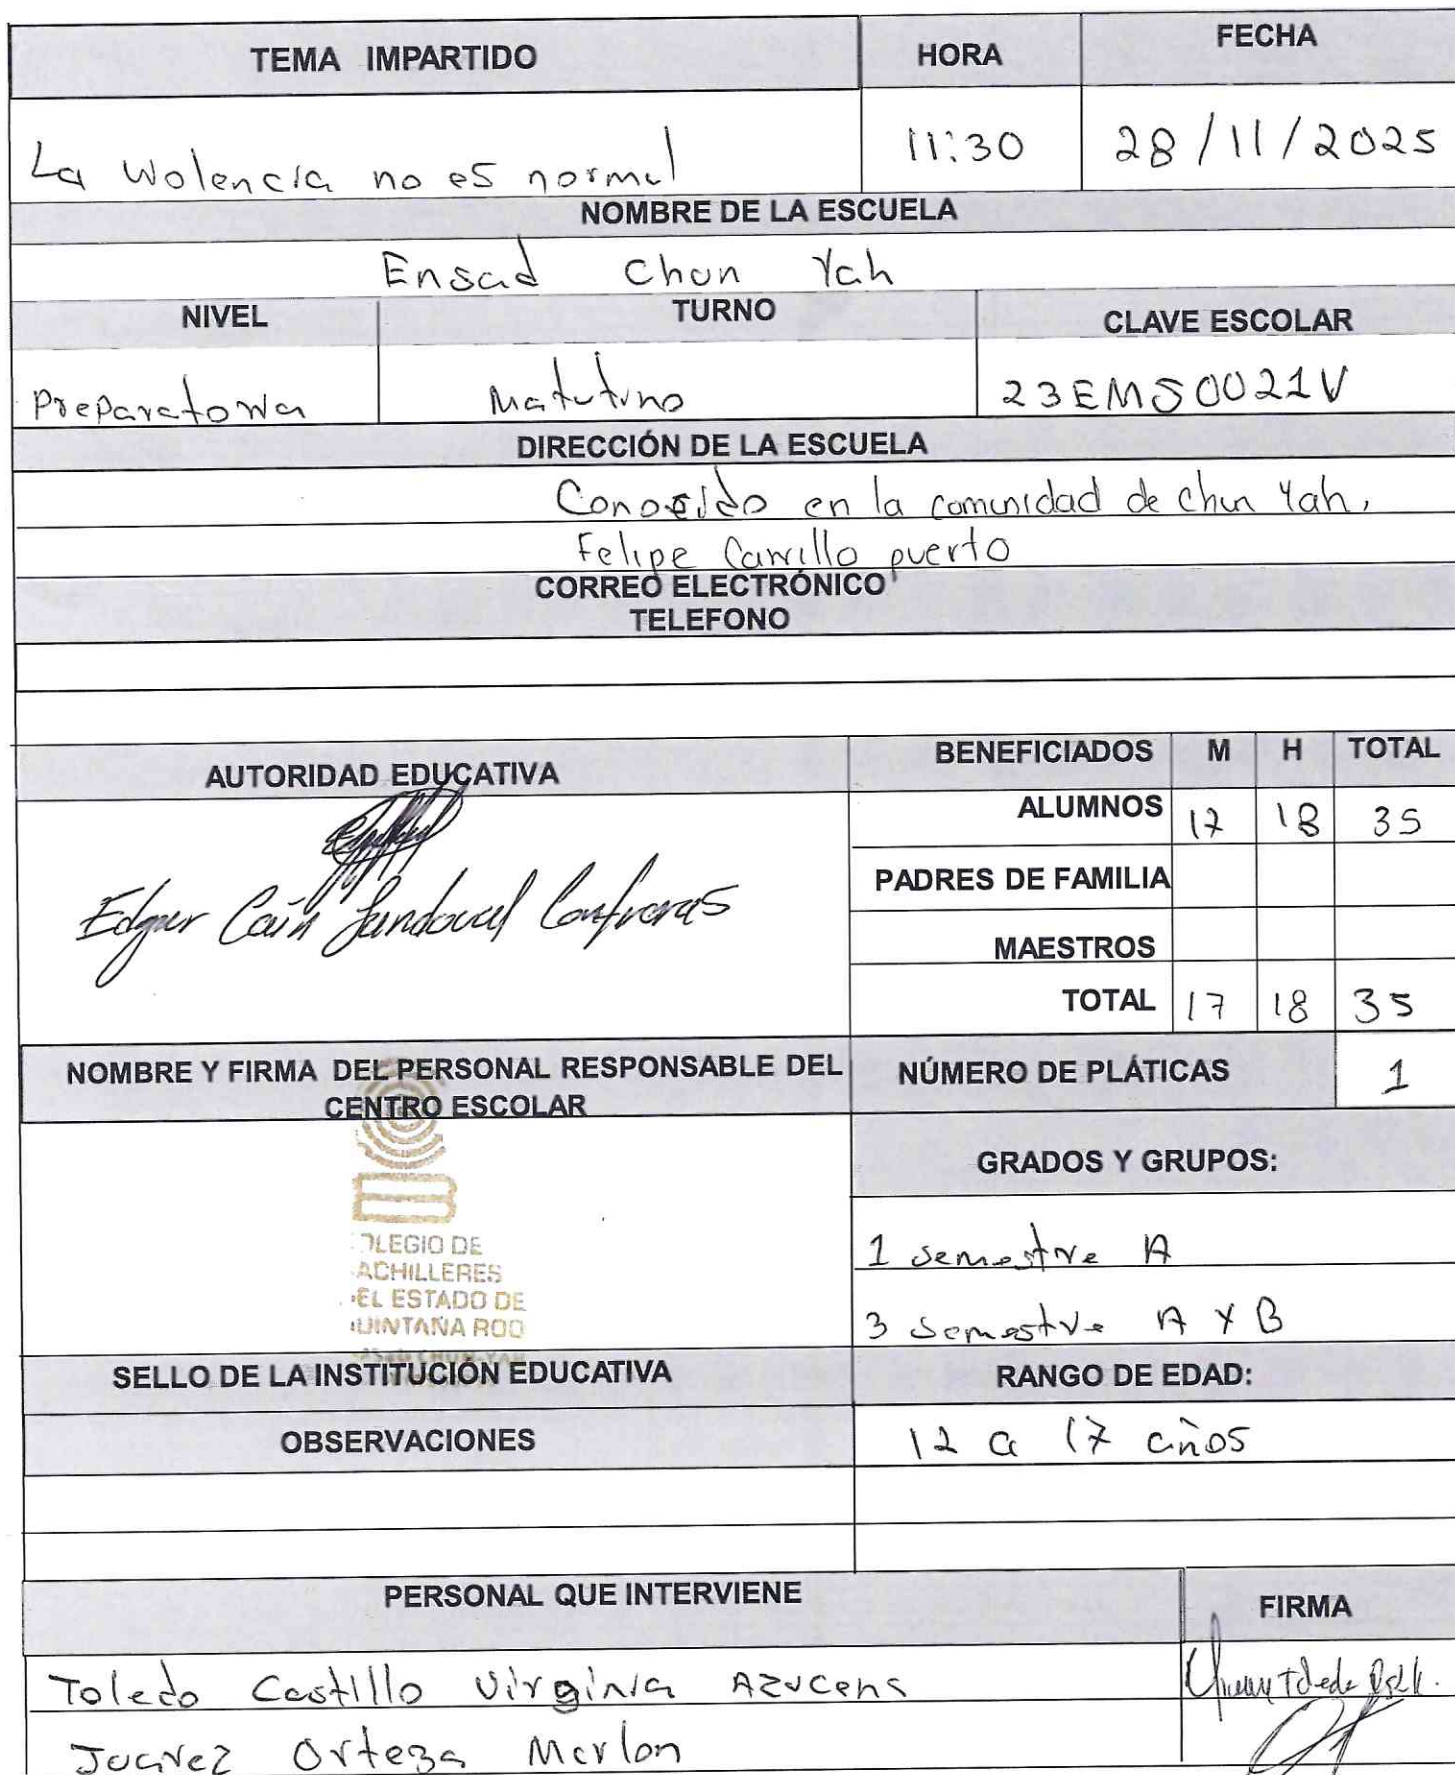 TEMA IMPARTIDO HORA FECHA
La Violencia no es normal 11:30 28/11/2025
NOMBRE DE LA ESCUELA
Ensad Chun Yah
NIVEL TURNO CLAVE ESCOLAR
Preparatoria Matutino 23EMS0021V
DIRECCIÓN DE LA ESCUELA
Conocido en la comunidad de chun Yah,
Felipe Carrillo puerto
CORREO ELECTRÓNICO
TELEFONO
AUTORIDAD EDUCATIVA BENEFICIADOS M H TOTAL
ALUMNOS 17 18 35
Edgar Caín Sandoval Contreras
PADRES DE FAMILIA
MAESTROS
TOTAL 17 18 35
NOMBRE Y FIRMA DEL PERSONAL RESPONSABLE DEL CENTRO ESCOLAR NÚMERO DE PLÁTICAS 1
GRADOS Y GRUPOS:
OLEGIO DE
ACHILLERES
EL ESTADO DE
UINTANA ROO
CHUN-YAH
1 semestre A
3 Semestre A y B
SELLO DE LA INSTITUCIÓN EDUCATIVA RANGO DE EDAD:
OBSERVACIONES 12 a 17 años
PERSONAL QUE INTERVIENE FIRMA
Toledo Castillo Virginia Azucena
Juarez Ortega Marlon